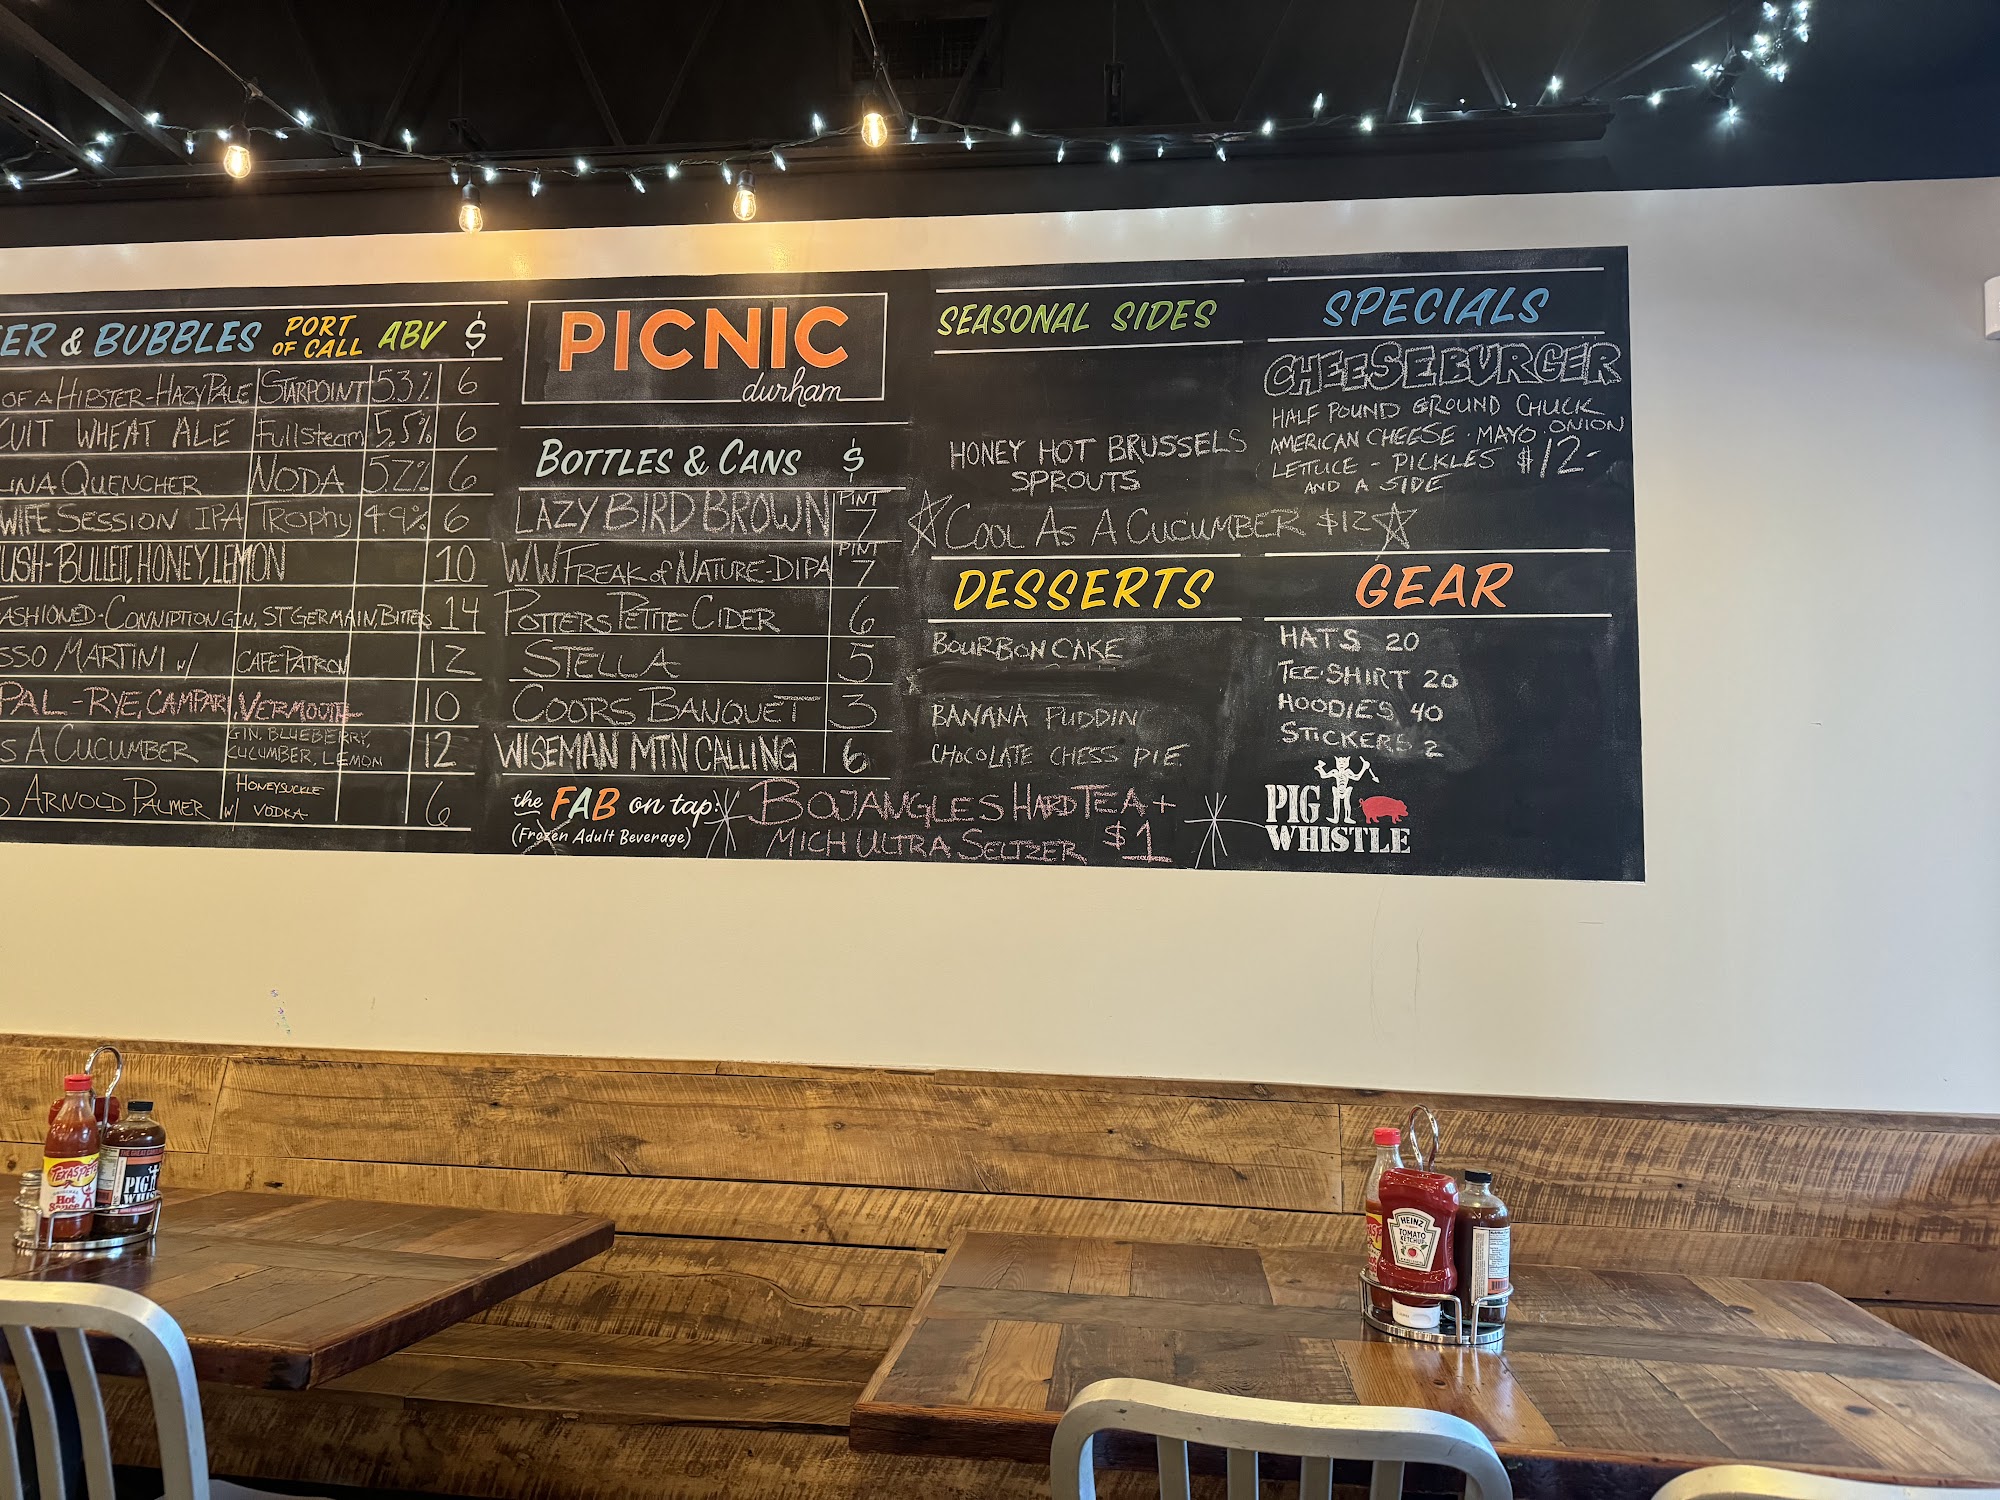 ER & BUBBLES PORT OF CALL ABV $
OF A HIPSTER-HAZY PALE STARPOINT 5.3% 6
CUIT WHEAT ALE Fullsteam 5.5% 6
LINA QUENCHER NODA 5.2% 6
WIFE SESSION IPA TROPHY 4.9% 6
USH-BULLEIT, HONEY, LEMON 10
ASHIONED-CONNIPTION GIN, ST GERMAIN, BITTERS 14
SSO MARTINI w/ CAFE PATRON 12
PAL-RYE, CAMPARI, VERMOUTH 10
S A CUCUMBER GIN, BLUEBERRY, CUCUMBER, LEMON 12
D ARNOLD PALMER w/ HONEYSUCKLE VODKA 6
PICNIC
durham
BOTTLES & CANS $
LAZY BIRD BROWN PINT 7
W.W. FREAK of NATURE-DIPA PINT 7
POTTERS PETITE CIDER 6
STELLA 5
COORS BANQUET 3
WISEMAN MTN CALLING 6
the FAB on tap:
(Frozen Adult Beverage)
BOJANGLES HARD TEA +
MICH ULTRA SELTZER $1
SEASONAL SIDES
HONEY HOT BRUSSELS
SPROUTS
COOL AS A CUCUMBER $12
SPECIALS
CHEESEBURGER
HALF POUND GROUND CHUCK
AMERICAN CHEESE · MAYO · ONION
LETTUCE - PICKLES $12-
AND A SIDE
DESSERTS
BOURBON CAKE
BANANA PUDDIN
CHOCOLATE CHESS PIE
GEAR
HATS 20
TEE-SHIRT 20
HOODIES 40
STICKERS 2
PIG
WHISTLE
TEXAS PETE
Hot
Sauce
PIG
WHIS
HEINZ
TOMATO
KETCHUP